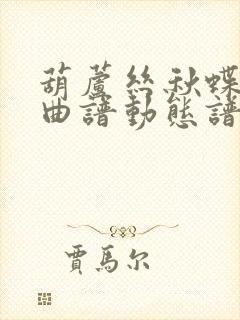 葫蘆絲秋蝶
曲譜動態譜
賈馬尔